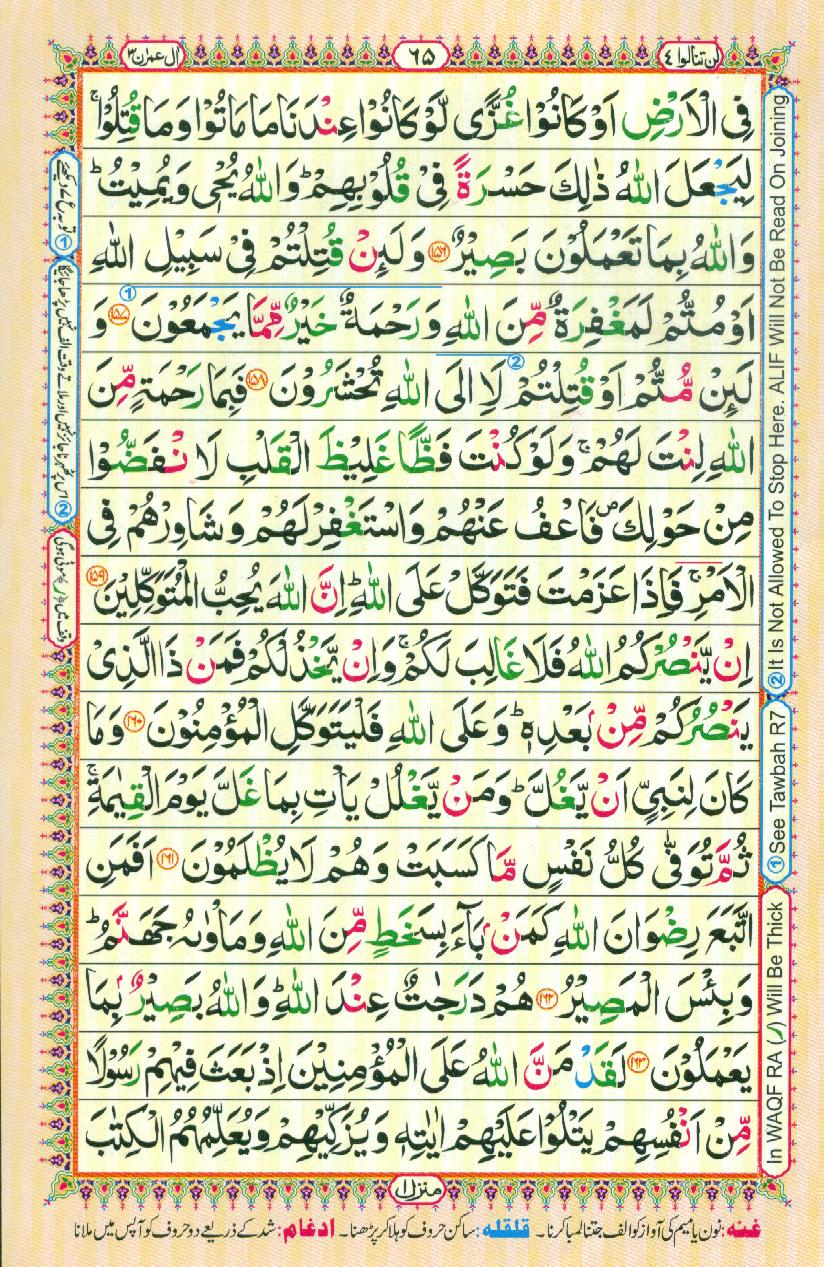 لن تنالوا ٤
٦٥
ال عمرٰن ٣
فِى الۡاَرۡضِ اَوۡ كَانُوۡا غُزًّى لَّوۡ كَانُوۡا عِنۡدَنَا مَا مَاتُوۡا وَمَا قُتِلُوۡا ۚ
لِيَجۡعَلَ اللّٰهُ ذٰلِكَ حَسۡرَةً فِىۡ قُلُوۡبِهِمۡ ؕ وَاللّٰهُ يُحۡىٖ وَيُمِيۡتُ ؕ
وَاللّٰهُ بِمَا تَعۡمَلُوۡنَ بَصِيۡرٌ ﴿۱۵۶﴾ وَلَٮِٕنۡ قُتِلۡتُمۡ فِىۡ سَبِيۡلِ اللّٰهِ
اَوۡ مُتُّمۡ لَمَغۡفِرَةٌ مِّنَ اللّٰهِ وَرَحۡمَةٌ خَيۡرٌ مِّمَّا يَجۡمَعُوۡنَ ﴿۱۵۷﴾ وَ
لَٮِٕنۡ مُّتُّمۡ اَوۡ قُتِلۡتُمۡ لَا۟اِلَى اللّٰهِ تُحۡشَرُوۡنَ ﴿۱۵۸﴾ فَبِمَا رَحۡمَةٍ مِّنَ
اللّٰهِ لِنۡتَ لَهُمۡ ۚ وَلَوۡ كُنۡتَ فَظًّا غَلِيۡظَ الۡقَلۡبِ لَا نۡفَضُّوۡا
مِنۡ حَوۡلِكَ ۖ فَاعۡفُ عَنۡهُمۡ وَاسۡتَغۡفِرۡ لَهُمۡ وَشَاوِرۡهُمۡ فِى
الۡاَمۡرِ ۚ فَاِذَا عَزَمۡتَ فَتَوَكَّلۡ عَلَى اللّٰهِ ؕ اِنَّ اللّٰهَ يُحِبُّ الۡمُتَوَكِّلِيۡنَ ﴿۱۵۹﴾
اِنۡ يَّنۡصُرۡكُمُ اللّٰهُ فَلَا غَالِبَ لَكُمۡ ۚ وَاِنۡ يَّخۡذُلۡكُمۡ فَمَنۡ ذَا الَّذِىۡ
يَنۡصُرُكُمۡ مِّنۡۢ بَعۡدِهٖ ؕ وَعَلَى اللّٰهِ فَلۡيَتَوَكَّلِ الۡمُؤۡمِنُوۡنَ ﴿۱۶۰﴾ وَمَا
كَانَ لِنَبِىٍّ اَنۡ يَّغُلَّ ؕ وَمَنۡ يَّغۡلُلۡ يَاۡتِ بِمَا غَلَّ يَوۡمَ الۡقِيٰمَةِ ۚ
ثُمَّ تُوَفّٰى كُلُّ نَفۡسٍ مَّا كَسَبَتۡ وَهُمۡ لَا يُظۡلَمُوۡنَ ﴿۱۶۱﴾ اَفَمَنِ
اتَّبَعَ رِضۡوَانَ اللّٰهِ كَمَنۡۢ بَآءَ بِسَخَطٍ مِّنَ اللّٰهِ وَمَاۡوٰٮهُ جَهَنَّمُ ؕ
وَبِئۡسَ الۡمَصِيۡرُ ﴿۱۶۲﴾ هُمۡ دَرَجٰتٌ عِنۡدَ اللّٰهِ ؕ وَاللّٰهُ بَصِيۡرٌۢ بِمَا
يَعۡمَلُوۡنَ ﴿۱۶۳﴾ لَقَدۡ مَنَّ اللّٰهُ عَلَى الۡمُؤۡمِنِيۡنَ اِذۡ بَعَثَ فِيۡهِمۡ رَسُوۡلًا
مِّنۡ اَنۡفُسِهِمۡ يَتۡلُوۡا عَلَيۡهِمۡ اٰيٰتِهٖ وَيُزَكِّيۡهِمۡ وَيُعَلِّمُهُمُ الۡكِتٰبَ
منزل ۱
غنه: نون یا میم کی آواز کو الف جتنا لمبا کرنا۔ قلقله: ساکن حروف کو ہلا کر پڑھنا۔ ادغام: شد کے ذریعے دو حروف کو آپس میں ملانا
② It Is Not Allowed To Stop Here. ALIF Will Not Be Read On Joining
① See Tawbah R7
In WAQF RA (ر) Will Be Thick
① توبہ ع ۷ دیکھئے
وقف میں (ر) موٹی ہوگی